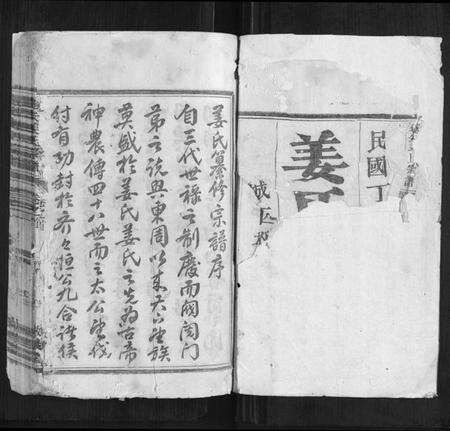 民國丁
姜氏
姜氏纂修宗譜序
自三代世祿之制廢而閥閱門
第之説興東周以来天下望族
莫盛於姜氏姜氏之先為古帝
神農傳四十八世而之太公望伐
紂有功封於齊々桓公九合諸侯